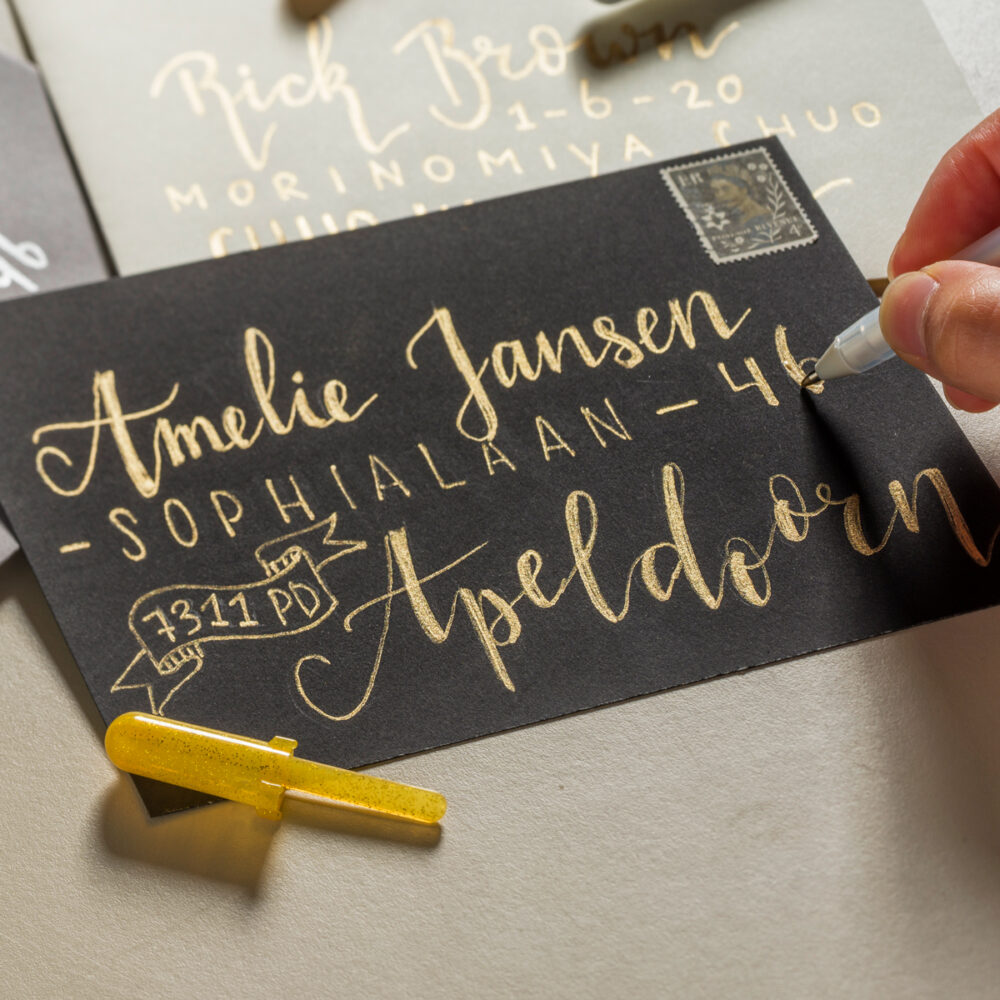 Rick Brown
1-6-20
MORINOMIYA CHUO
Amelie Jansen
-SOPHIALAAN-46
7311 PD
Apeldoorn